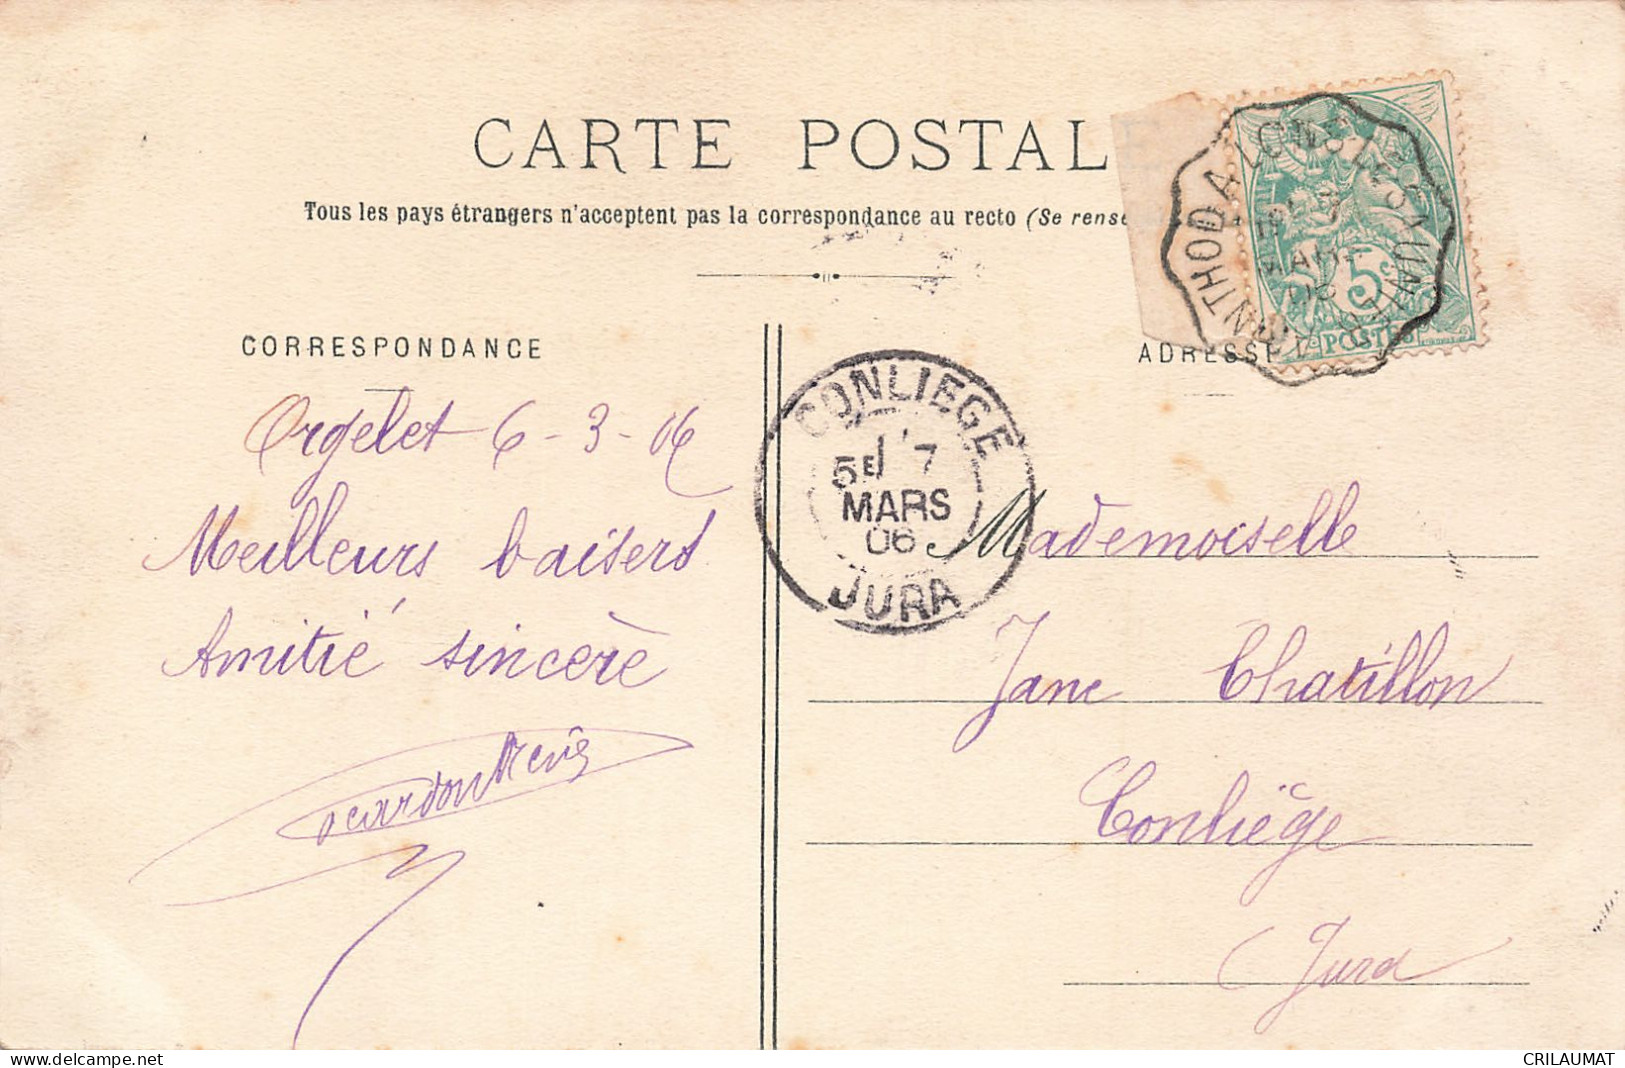 CARTE POSTALE
Tous les pays étrangers n'acceptent pas la correspondance au recto (Se rense
CORRESPONDANCE
ADRESSE
5c
POSTES
ARINTHOD A LONS-LE-SAUNIER
MARS
06
CONLIEGE
5E 7
MARS
06
JURA
Orgelet 6-3-06
Meilleurs baisers
Amitié sincère
Mademoiselle
Jane Chatillon
Conliège
Jura
www.delcampe.net
CRILAUMAT